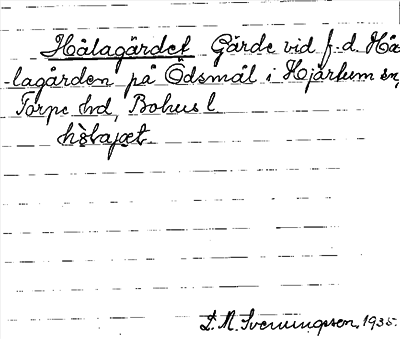 Hålagärdet Gärde vid f.d. Hå-
lagården på Ödsmål i Hjärtum sn,
Torpe hd, Bohus l
S. M. Svenungsson, 1935.